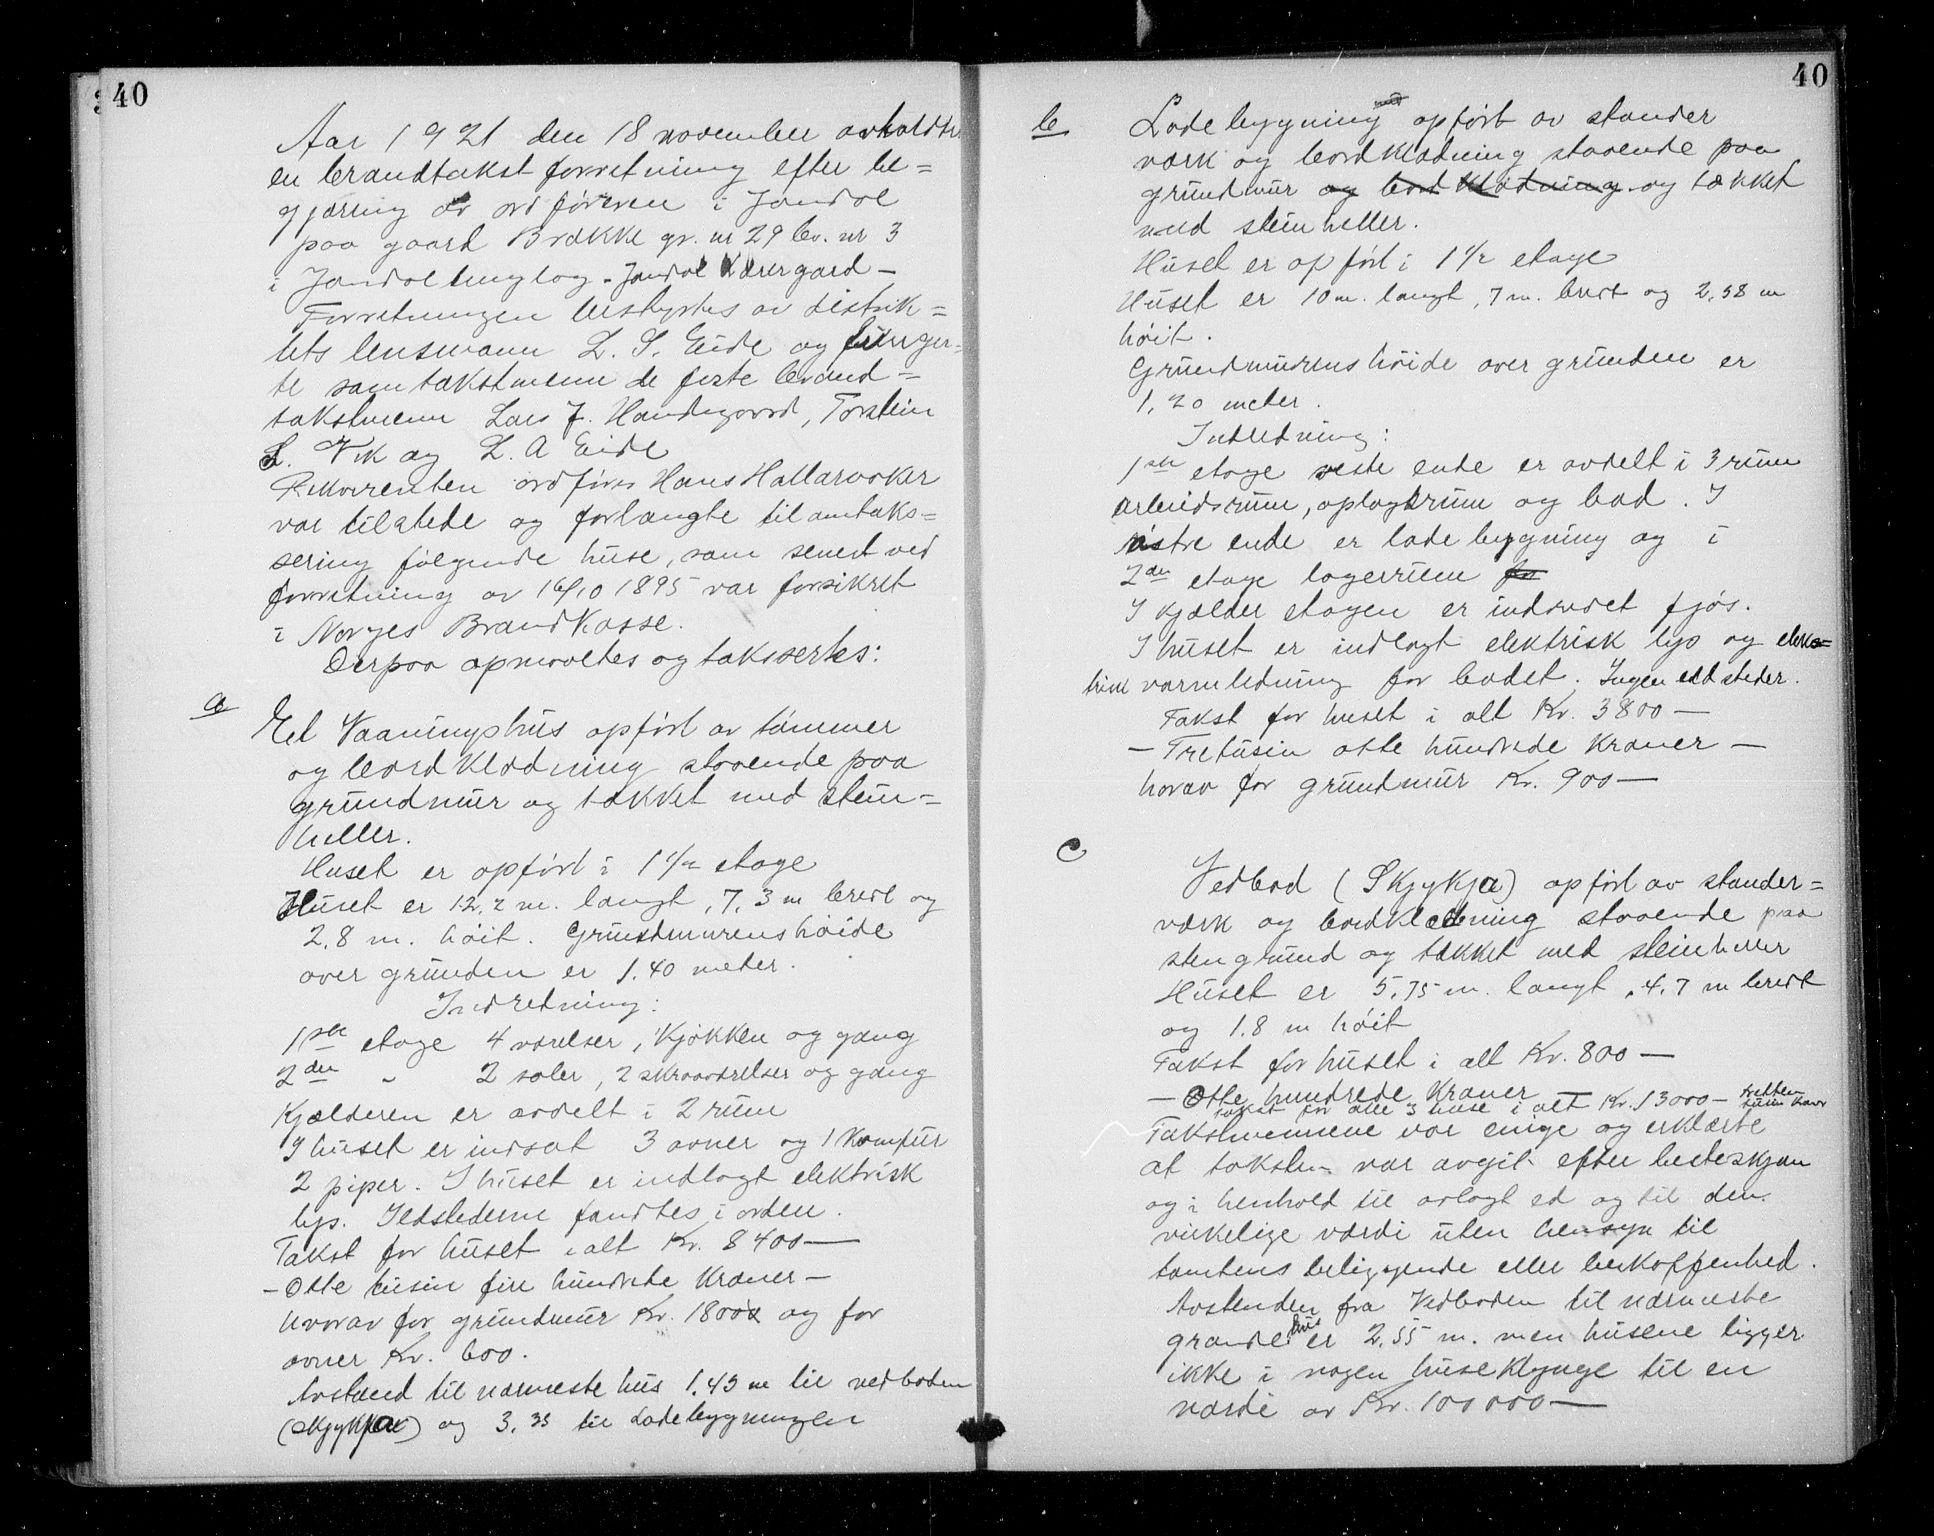 40
Aar 1921 den 18 november avholdtes
en brandtakst forretning efter be=
gjæring av ordføreren i Jondal
paa gaard Brække gr. nr 29 br. nr 3
i Jondal tinglag - Jondal Lærergard -
Forretningen bestyrtes av distrik=
tets lensmann L. S. Eide og funger=
te som takstmenn de faste brand=
takstmenn Lars J. Handegaard, Torstein
L. Vik og L. A Eide
Rekvirenten ordfører Hans Hallaraaker
var tilstede og forlangte til omtaks=
sering følgende huse, som senest ved
forretning av 16/10 1895 var forsikret
i Norges Brandkasse.
Derpaa opmaaltes og taksertes:
a
Et Vaaningshus opført av tømmer
og bordklædning staaende paa
grundmur og tækket med stein=
heller.
Huset er opført i 1 1/2 etage
Huset er 12,2 m. langt, 7,3 m bredt og
2,8 m. høit. Grundmurens høide
over grunden er 1.40 meter.
Indretning:
1ste etage 4 værelser, kjøkken og gang
2den " 2 saler, 2 skraaværelser og gang
Kjælderen er avdelt i 2 rum
I huset er indsat 3 ovner og 1 komfur
2 piper. I huset er indlagt elektrisk
lys. Ildstederne fandtes i orden.
Takst for huset i alt Kr. 8400 —
- Otte tusin fire hundrede kroner -
hvorav for grundmur Kr. 1800 og for
ovner Kr. 600.
Avstand til nærmeste hus 1.45 m til vedboden
(Skjykja) og 3.35 til Ladebygningen
40
b
Ladebygning opført av stander
værk og bordklædning staaende paa
grundmur og bordklædning og tækket
med steinheller.
Huset er opført i 1 1/2 etage
Huset er 10 m. langt, 7 m. bredt og 2,38 m
høit.
Grundmurens høide over grunden er
1,20 meter.
Indredning:
1ste etage veste ende er avdelt i 3 rum
arbeidsrum, oplagsrum og bad. I
østre ende er ladebygning og i
2den etage lagerrum for
I kjælder etagen er indredet fjøs.
I huset er indlagt elektrisk lys og elek=
trisk varmeledning for badet. Ingen ildsteder.
Takst for huset i alt Kr. 3800 —
— Tretusin otte hundrede kroner —
horav for grundmur Kr. 900 —
c
Vedbod (Skjykja) opført av stander=
værk og bordklædning staaende paa
stengrund og tækket med steinheller
Huset er 5,75 m. langt, 4,7 m bredt
og 1.8 m høit
Takst for huset i alt Kr. 800 —
— Otte hundrede kroner —
Takst for alle 3 huse i alt Kr. 13000 — tretten tusin kroner
Takstmennene var enige og erklærte
at taksten var avgit efter bedste skjøn
og i henhold til avlagt ed og til den
virkelige værdi uten hensyn til
tomtens beliggende eller beskaffenhed.
Avstanden fra Vedboden til nærmeste
grandehus er 2,55 m. men husene ligger
ikke i nogen huseklynge til en
værdi av Kr. 100 000 —